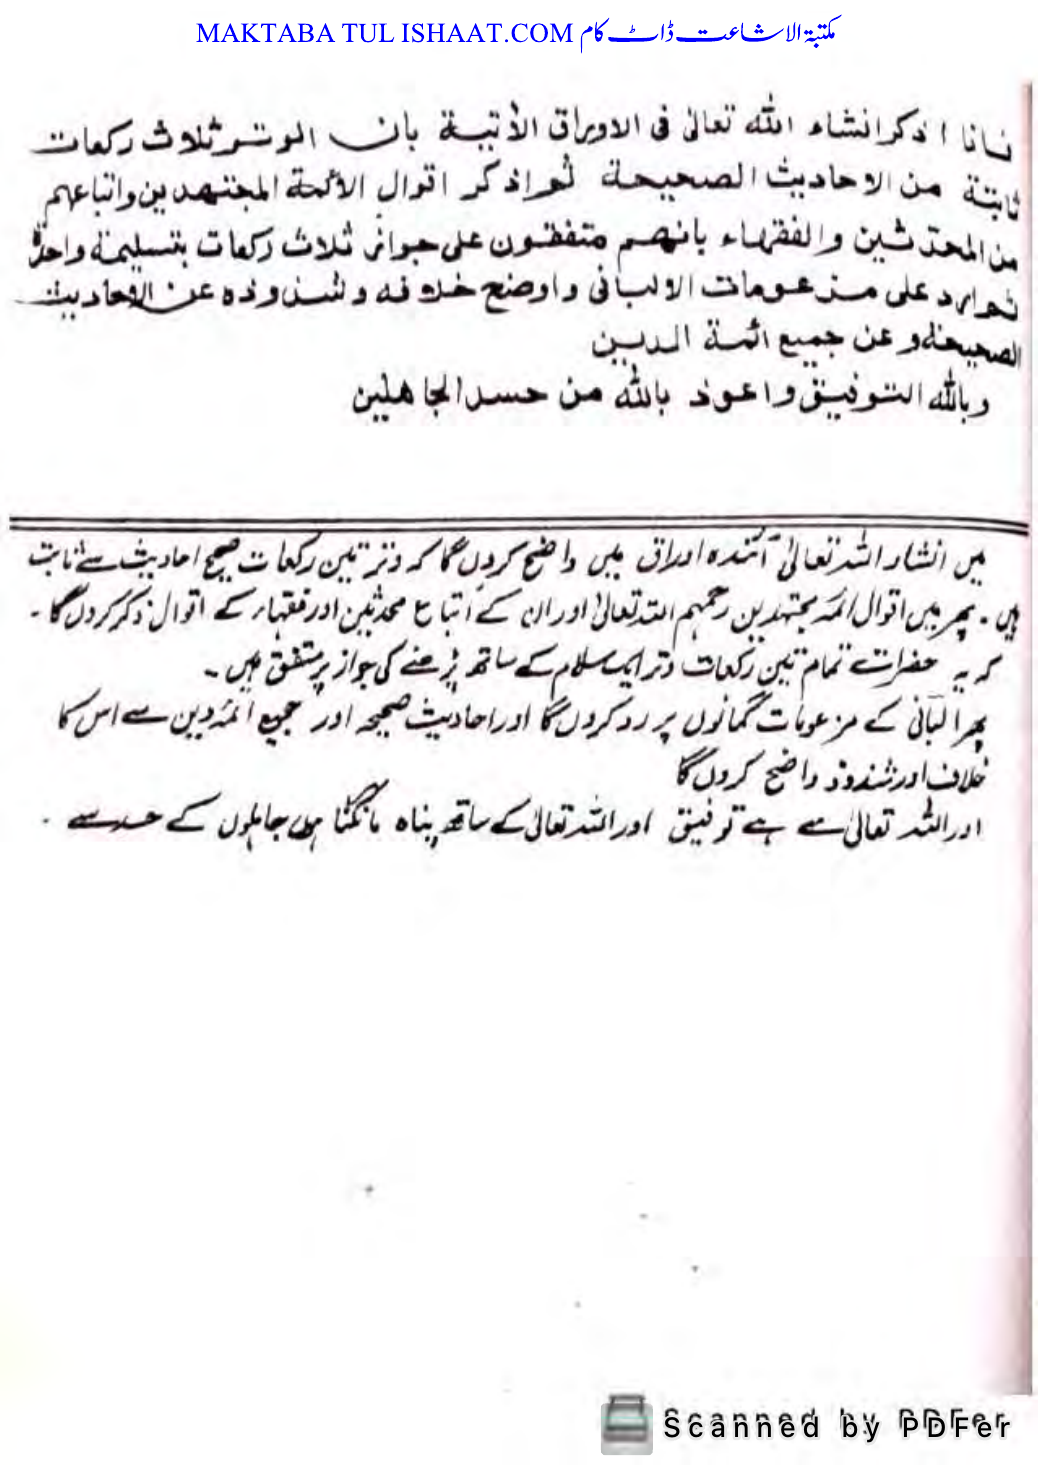 MAKTABA TUL ISHAAT.COM مکتبۃ الاشاعت ڈاٹ کام
فانا اذكر انشاء الله تعالى فى الاوراق الأتية بان الوتر ثلاث ركعات
ثابتة من الاحاديث الصحيحة ثم اذكر اقوال الأئمة المجتهدين واتباعهم
من المحدثين والفقهاء بانهم متفقون على جواز ثلاث ركعات بتسليمة واحدة
ثم ارد على مزعومات الالبانى واوضح خلافه وشذوذه عن الاحاديث
الصحيحة وعن جميع ائمة الدين
وبالله التوفيق واعوذ بالله من حسد الجاهلين
میں انشاء اللہ تعالیٰ آئندہ اوراق میں واضح کروں گا کہ وتر تین رکعات صحیح احادیث سے ثابت
ہیں۔ پھر میں اقوال ائمہ مجتہدین رحمہم اللہ تعالیٰ اور ان کے اتباع محدثین اور فقہاء کے اقوال ذکر کروں گا۔
کہ یہ حضرات تمام تین رکعات وتر ایک سلام کے ساتھ پڑھنے کی جواز پر متفق ہیں۔
پھر البانی کے مزعومات گمانوں پر رد کروں گا اور احادیث صحیحہ اور جمیع ائمہ دین سے اس کا
خلاف اور شذوذ واضح کروں گا
اور اللہ تعالیٰ سے ہے توفیق اور اللہ تعالیٰ کے ساتھ پناہ مانگتا ہوں جاہلوں کے حسد سے۔
Scanned by PDFer